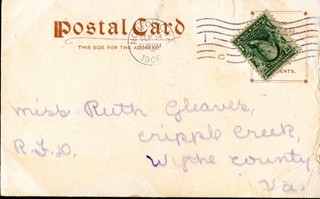 Postal Card
THIS SIDE FOR THE ADDRESS
SEP 14
1906
Miss Ruth Gleaves,
Cripple Creek,
R.F.D. Wythe County
Va.